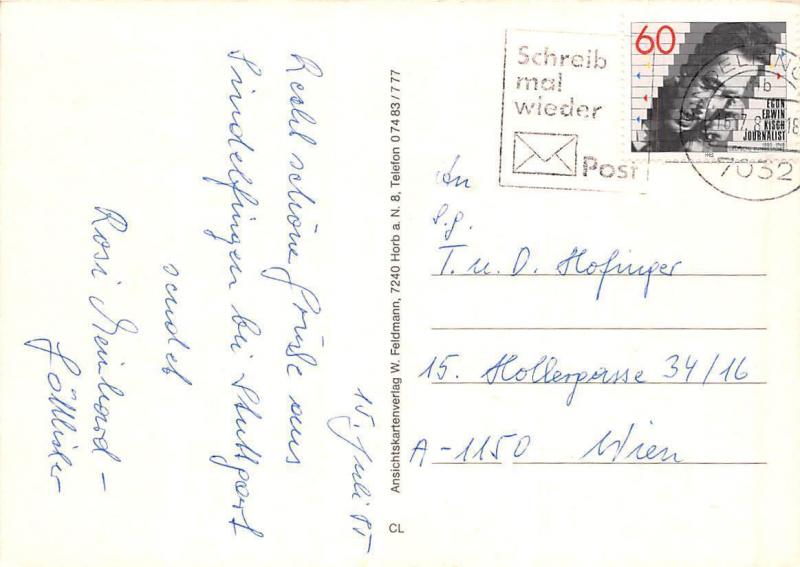 Recht schöne Grüße aus
Sindelfingen bei Stuttgart
sendet
Rosi Meinhard-
15. Juli 85
Ansichtskartenverlag W. Feldmann, 7240 Horb a. N. 8, Telefon 07483/777
CL
Schreib
mal
wieder
Post
60
EGON
ERWIN
KISCH
JOURNALIST
7032
An
S.g.
T. u. D. Hofinger
15. Hollergasse 34/16
A-1150 Wien